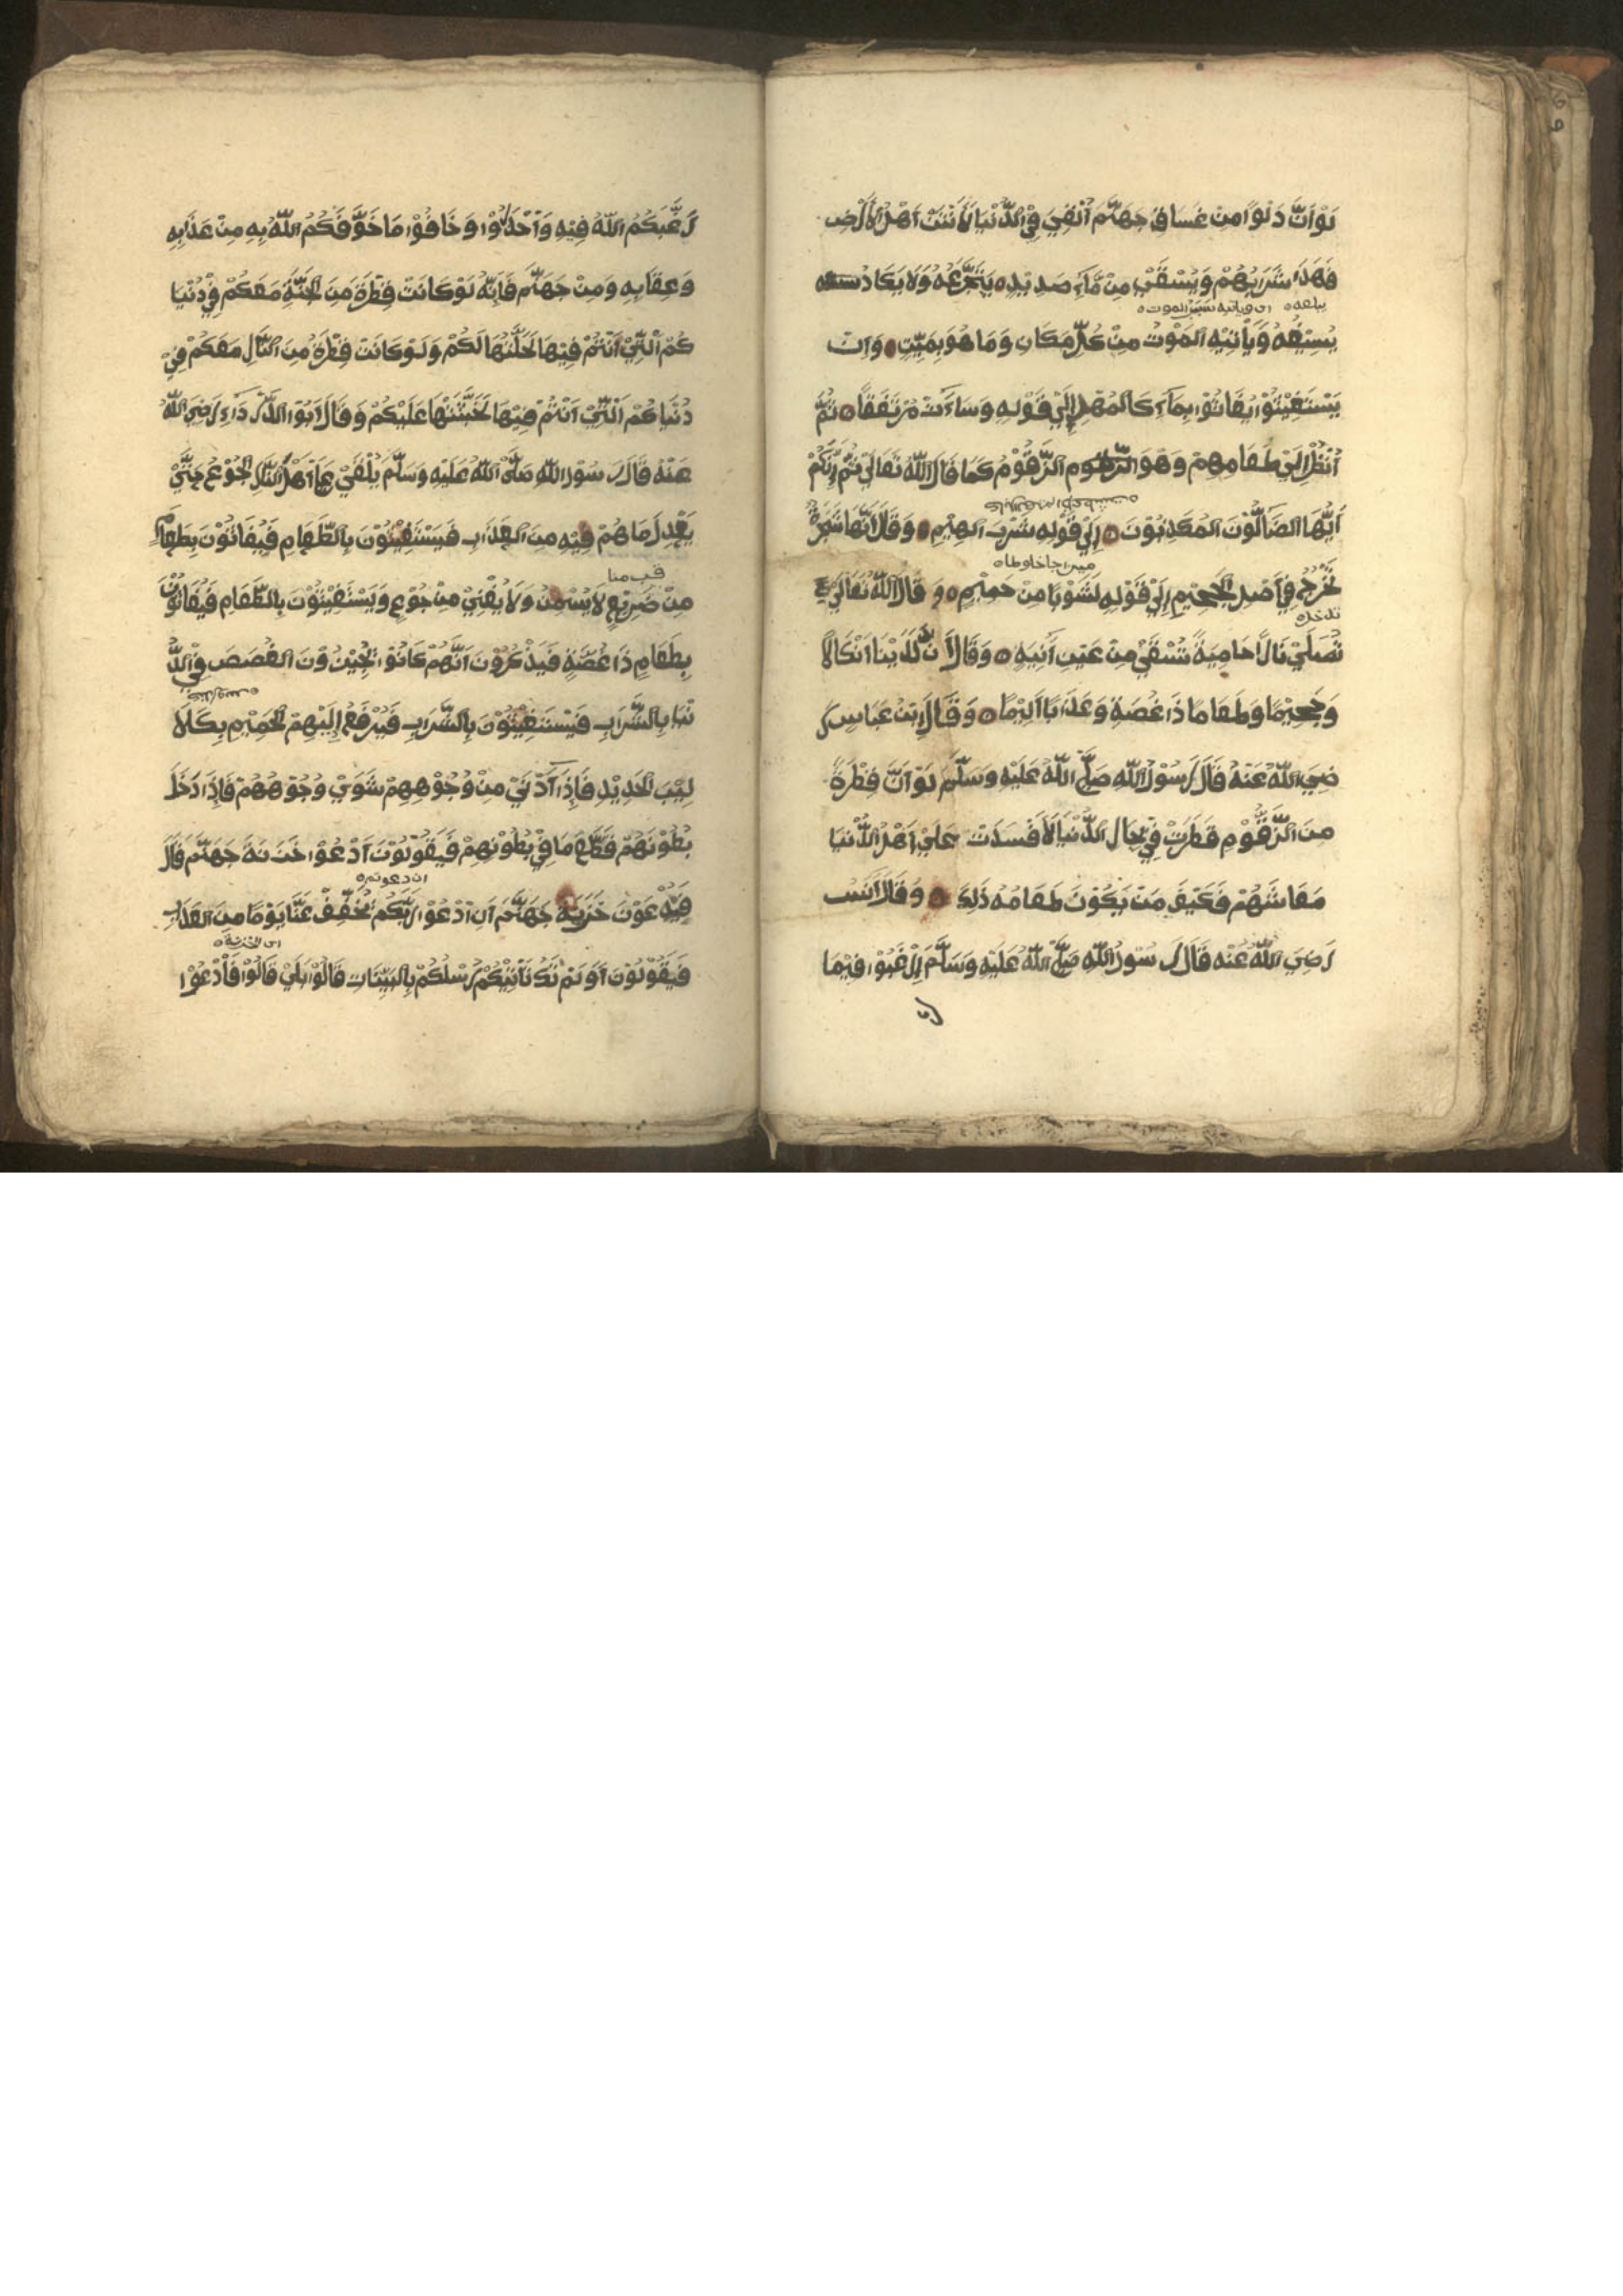 لَوْ اَنَّ دَلْوًا مِنْ غَسَاقِ جَهَنَّمَ اُلْقِيَ فِيْ الدُّنْيَا لَاَنْتَنَ اَهْلَ الْاَرْضِ
فَهَذَا شَرَابُهُمْ وَيُسْقَيٰ مِنْ مَّآءٍ صَدِيْدٍه يَتَجَرَّعُهُ وَلَا يَكَادُ
يبلعه ه اى وياتيه سبب الموت ه
يُسِيْغُهُ وَيَأْتِيْهِ الْمَوْتُ مِنْ كُلِّ مَكَانٍ وَمَا هُوَ بِمَيِّتٍ ه وَاِنْ
يَسْتَغِيْثُوْا يُغَاثُوْا بِمَآءٍ كَالْمُهْلِ اِلَيٰ قَوْلِهِ وَسَآءَتْ مُرْتَفَقًا ه ثُمَّ
اُنْظُرْ اِلَيٰ طَعَامِهِمْ وَهُوَ الزَّقُّوْمُ كَمَا قَالَ اللّٰهُ تَعَالَيٰ ثُمَّ اِنَّكُمْ
اَيُّهَا الضَّآلُّوْنَ الْمُكَذِّبُوْنَ ه اِلَيٰ قَوْلِهِ شُرْبَ الْهِيْمِ ه وَقَالَ اِنَّهَا شَجَرَةٌ
تَخْرُجُ فِيْ اَصْلِ الْجَحِيْمِ اِلَيٰ قَوْلِهِ لَشَوْبًا مِنْ حَمِيْمٍ ه وَقَالَ اللّٰهُ تَعَالَيٰ
تدخل ه
تَصْلَيٰ نَارًا حَامِيَةً تُسْقَيٰ مِنْ عَيْنٍ اٰنِيَةٍ ه وَقَالَ اِنَّ لَدَيْنَا اَنْكَالًا
وَجَحِيْمًا وَطَعَامًا ذَا غُصَّةٍ وَعَذَابًا اَلِيْمًا ه وَقَالَ ابْنُ عَبَّاسٍ رَ
ضِيَ اللّٰهُ عَنْهُ قَالَ رَسُوْلُ اللّٰهِ صَلَّيٰ اللّٰهُ عَلَيْهِ وَسَلَّمَ لَوْ اَنَّ قَطْرَةً
مِنَ الزَّقُّوْمِ قَطَرَتْ فِيْ بِحَارِ الدُّنْيَا لَاَفْسَدَتْ عَلَيٰ اَهْلِ الدُّنْيَا
مَعَاشَهُمْ فَكَيْفَ مَنْ يَكُوْنُ طَعَامُهُ ذَلِكَ ه وَقَالَ اَنَسُ
رَضِيَ اللّٰهُ عَنْهُ قَالَ رَسُوْلُ اللّٰهِ صَلَّيٰ اللّٰهُ عَلَيْهِ وَسَلَّمَ اِرْغَبُوْا فِيْمَا
رَغَّبَكُمُ اللّٰهُ فِيْهِ وَاحْذَرُوْا وَخَافُوْا مَا خَوَّفَكُمُ اللّٰهُ بِهِ مِنْ عَذَابِهِ
وَعِقَابِهِ وَمِنْ جَهَنَّمَ فَاِنَّهُ لَوْ كَانَتْ قَطْرَةٌ مِنَ الْجَنَّةِ مَعَكُمْ فِيْ دُنْيَا
كُمُ الَّتِيْ اَنْتُمْ فِيْهَا لَحَلَّتْهَا لَكُمْ وَلَوْ كَانَتْ قَطْرَةٌ مِنَ النَّارِ مَعَكُمْ فِيْ
دُنْيَاكُمُ الَّتِيْ اَنْتُمْ فِيْهَا لَخَبَّثَتْهَا عَلَيْكُمْ وَقَالَ اَبُوْ الدَّرْدَاءِ رَضِيَ اللّٰهُ
عَنْهُ قَالَ رَسُوْلُ اللّٰهِ صَلَّيٰ اللّٰهُ عَلَيْهِ وَسَلَّمَ يُلْقَيٰ عَلَيٰ اَهْلِ النَّارِ الْجُوْعُ حَتَّيٰ
يَعْدِلَ مَا هُمْ فِيْهِ مِنَ الْعَذَابِ فَيَسْتَغِيْثُوْنَ بِالطَّعَامِ فَيُغَاثُوْنَ بِطَعَامٍ
مِنْ ضَرِيْعٍ لَا يُسْمِنُ وَلَا يُغْنِيْ مِنْ جُوْعٍ وَيَسْتَغِيْثُوْنَ بِالطَّعَامِ فَيُغَاثُوْنَ
بِطَعَامٍ ذَا غُصَّةٍ فَيَذْكُرُوْنَ اَنَّهُمْ كَانُوْا يُجِيْزُوْنَ الْغُصَصَ فِيْ الدُّ
نْيَا بِالشَّرَابِ فَيَسْتَغِيْثُوْنَ بِالشَّرَابِ فَيُرْفَعُ اِلَيْهِمُ الْحَمِيْمُ بِكَلَا
لِيْبِ الْحَدِيْدِ فَاِذَا اَدْنَيٰ مِنْ وُجُوْهِهِمْ شَوَيٰ وُجُوْهَهُمْ فَاِذَا دَخَلَ
بُطُوْنَهُمْ قَطَّعَ مَا فِيْ بُطُوْنِهِمْ فَيَقُوْلُوْنَ اُدْعُوْا خَزَنَةَ جَهَنَّمَ قَالَ
فَيَدْعُوْنَ خَزَنَةَ جَهَنَّمَ اَنِ ادْعُوْا رَبَّكُمْ يُخَفِّفْ عَنَّا يَوْمًا مِنَ الْعَذَابِ
اى الخزنة ه
فَيَقُوْلُوْنَ اَوَلَمْ تَكُ تَأْتِيْكُمْ رُسُلُكُمْ بِالْبَيِّنَاتِ قَالُوْا بَلَيٰ قَالُوْا فَادْعُوْا